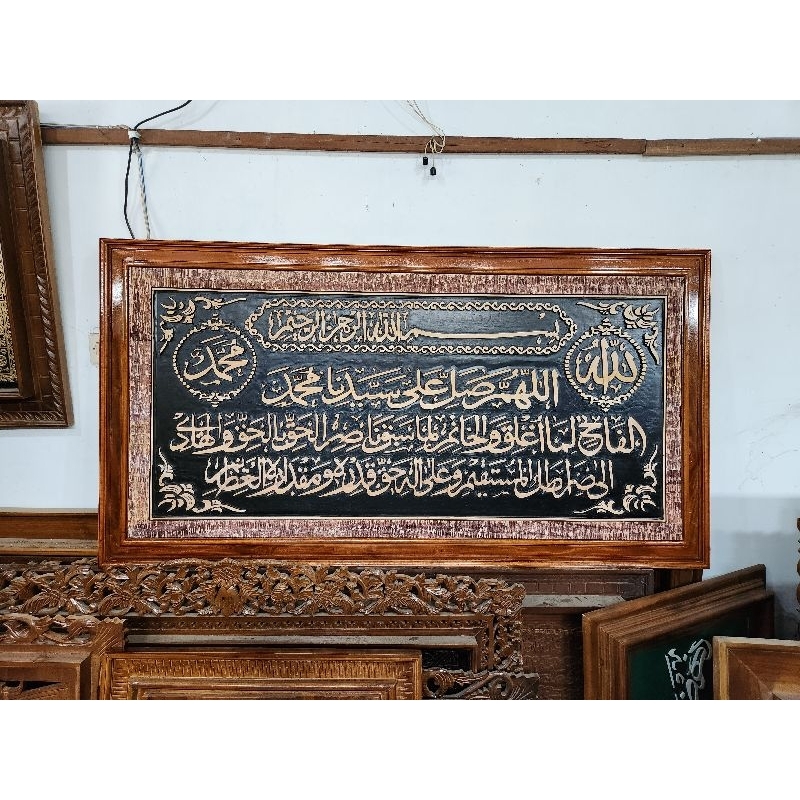 بسم الله الرحمن الرحيم
الله
محمد
اللهم صل على سيدنا محمد
الفاتح لما أغلق والخاتم لما سبق ناصر الحق بالحق والهادى
الى صراطك المستقيم وعلى اله حق قدره ومقداره العظيم